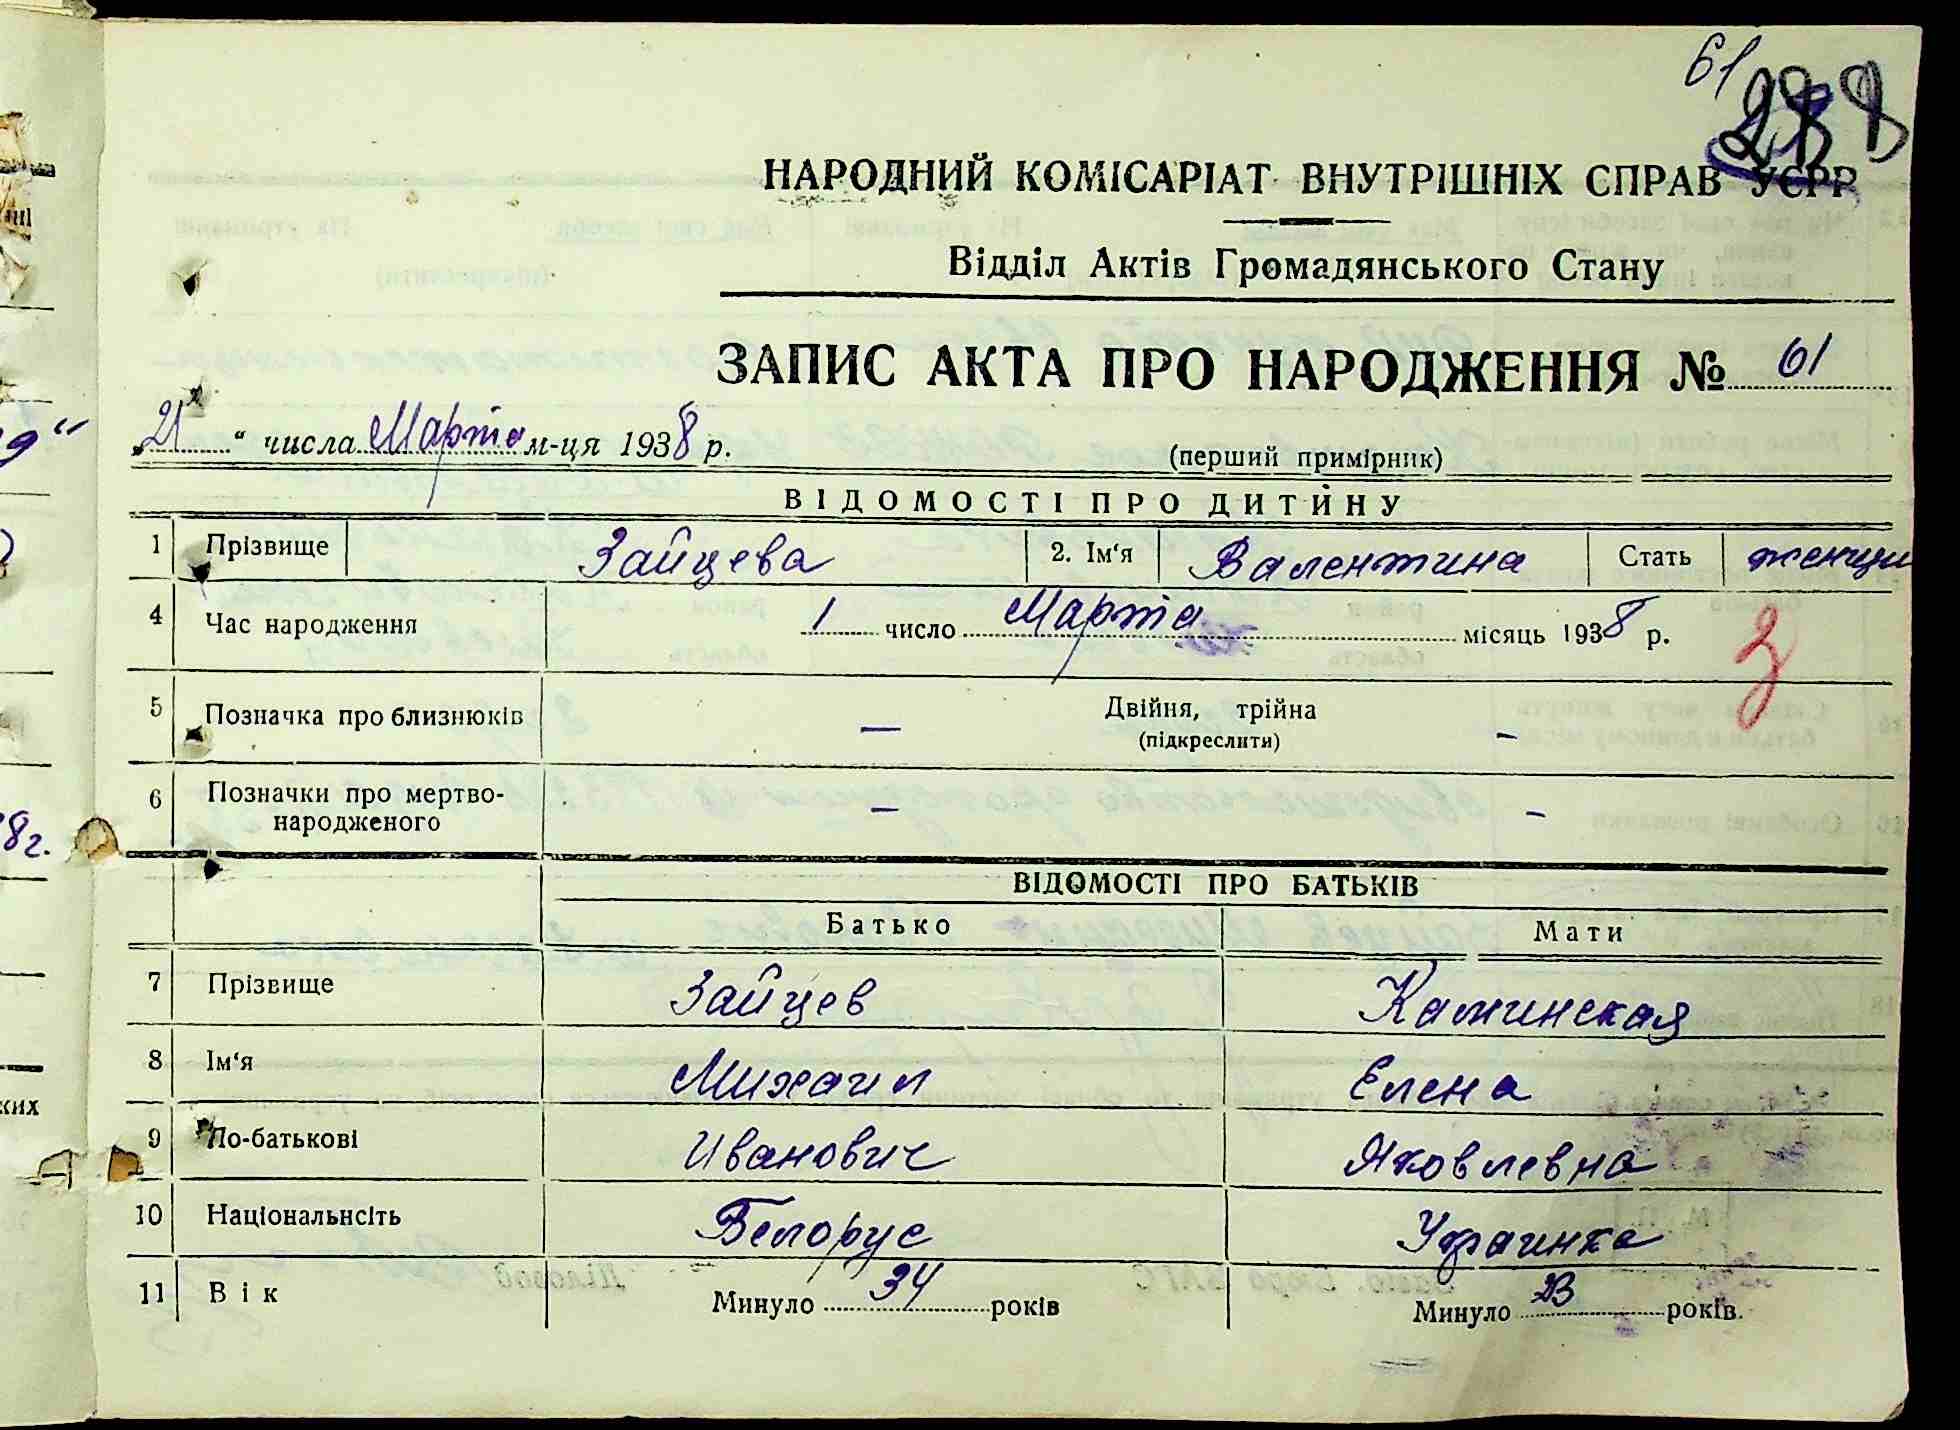 61
288
НАРОДНИЙ КОМІСАРІАТ ВНУТРІШНІХ СПРАВ УСРР
Відділ Актів Громадянського Стану
ЗАПИС АКТА ПРО НАРОДЖЕННЯ № 61
„21“ числа Марта м-ця 1938 р.
(перший примірник)
ВІДОМОСТІ ПРО ДИТИНУ
1 Прізвище Зайцева 2. Ім‘я Валентина Стать женщи
4 Час народження 1 число Марта місяць 1938 р.
З
5 Позначка про близнюків — Двійня, трійна –
(підкреслити)
6 Позначки про мертво-
народженого — –
ВІДОМОСТІ ПРО БАТЬКІВ
Батько Мати
7 Прізвище Зайцев Каминская
8 Ім‘я Михаил Елена
9 По-батькові Иванович Яковлевна
10 Національнсіть Белорус Украинка
11 Вік Минуло 34 років Минуло 23 років.
9“
8г.
ких